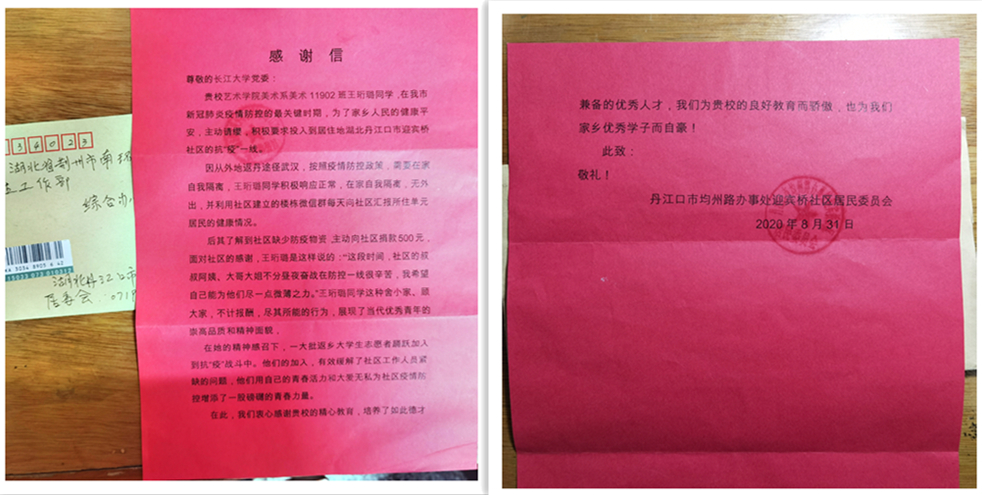 感谢信
尊敬的长江大学党委：
贵校艺术学院美术系美术11902班王珩璐同学，在我市
新冠肺炎疫情防控的最关键时期，为了家乡人民的健康平
安，主动请缨，积极要求投入到居住地湖北丹江口市迎宾桥
社区的抗“疫”一线。
因从外地返丹途径武汉，按照疫情防控政策，需要在家
自我隔离，王珩璐同学积极响应正常，在家自我隔离，无外
出，并利用社区建立的楼栋微信群每天向社区汇报所住单元
居民的健康情况。
后其了解到社区缺少防疫物资，主动向社区捐款500元，
面对社区的感谢，王珩璐是这样说的：“这段时间，社区的叔
叔阿姨、大哥大姐不分昼夜奋战在防控一线很辛苦，我希望
自己能为他们尽一点微薄之力。”王珩璐同学这种舍小家、顾
大家，不计报酬，尽其所能的行为，展现了当代优秀青年的
崇高品质和精神面貌。
在她的精神感召下，一大批返乡大学生志愿者踊跃加入
到抗“疫”战斗中。他们的加入，有效缓解了社区工作人员紧
缺的问题，他们用自己的青春活力和大爱无私为社区疫情防
控增添了一股磅礴的青春力量。
在此，我们衷心感谢贵校的精心教育，培养了如此德才
434023
湖北省荆州市南环
工作部
综合办
湖北丹江口市
居委会 071
兼备的优秀人才，我们为贵校的良好教育而骄傲，也为我们
家乡优秀学子而自豪！
此致：
敬礼！
丹江口市均州路办事处迎宾桥社区居民委员会
2020年8月31日